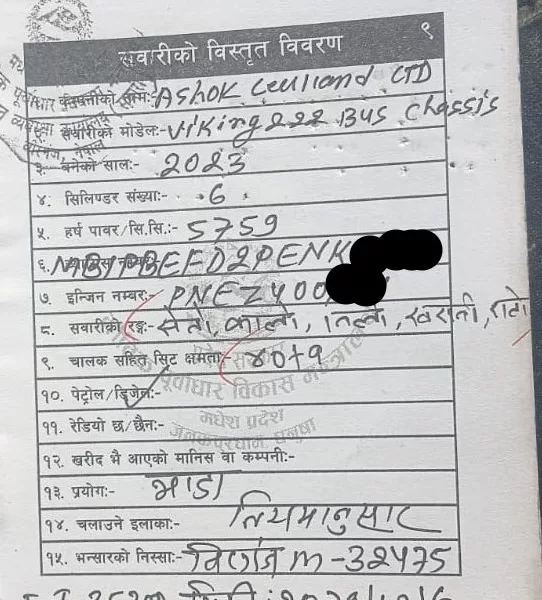 ९
सवारीको विस्तृत विवरण
कम्पनीको नाम:- Ashok Leylland LTD
सवारीको मोडेल:- Viking 222 Bus Chassis
३. बनेको साल:- 2023
४. सिलिण्डर संख्या:- 6
५. हर्ष पावर/सि.सि.:- 5759
६. MB1PBEFD2PENK
७. इन्जिन नम्बर:- PNEZ400
८. सवारीको रङ्ग:- सेतो, कालो, निलो, खरानी, रातो
९. चालक सहित सिट क्षमता:- ४०+१
१०. पेट्रोल/डिजेल:-
११. रेडियो छ/छैन:-
१२. खरीद भै आएको मानिस वा कम्पनी:-
१३. प्रयोग:- भाडा
१४. चलाउने इलाका:- नियमानुसार
१५. भन्सारको निस्सा:- M-32475
पूर्वाधार विकास मन्त्रालय
मधेश प्रदेश
जनकपुरधाम धनुषा